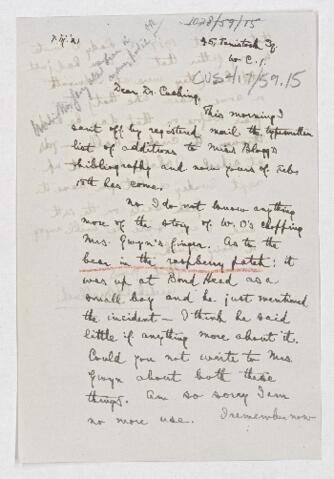 1028/59/15
45, Tavistock Sq.
W.C.1.
CUS417/59.15
Dear Dr. Cushing,
This morning I
sent off by registered mail the typewritten
list of additions to Miss Blogg's
bibliography and now yours of Feb.
10th has come.
No I do not know anything
more of the story of W.O's chopping
Mrs. Gwyn's finger. As to the
bear in the raspberry patch: it
was up at Bond Head as a
small boy and he just mentioned
the incident – I think he said
little if anything more about it.
Could you not write to Mrs.
Gwyn about both these
things. Am so sorry I am
no more use. I remember now